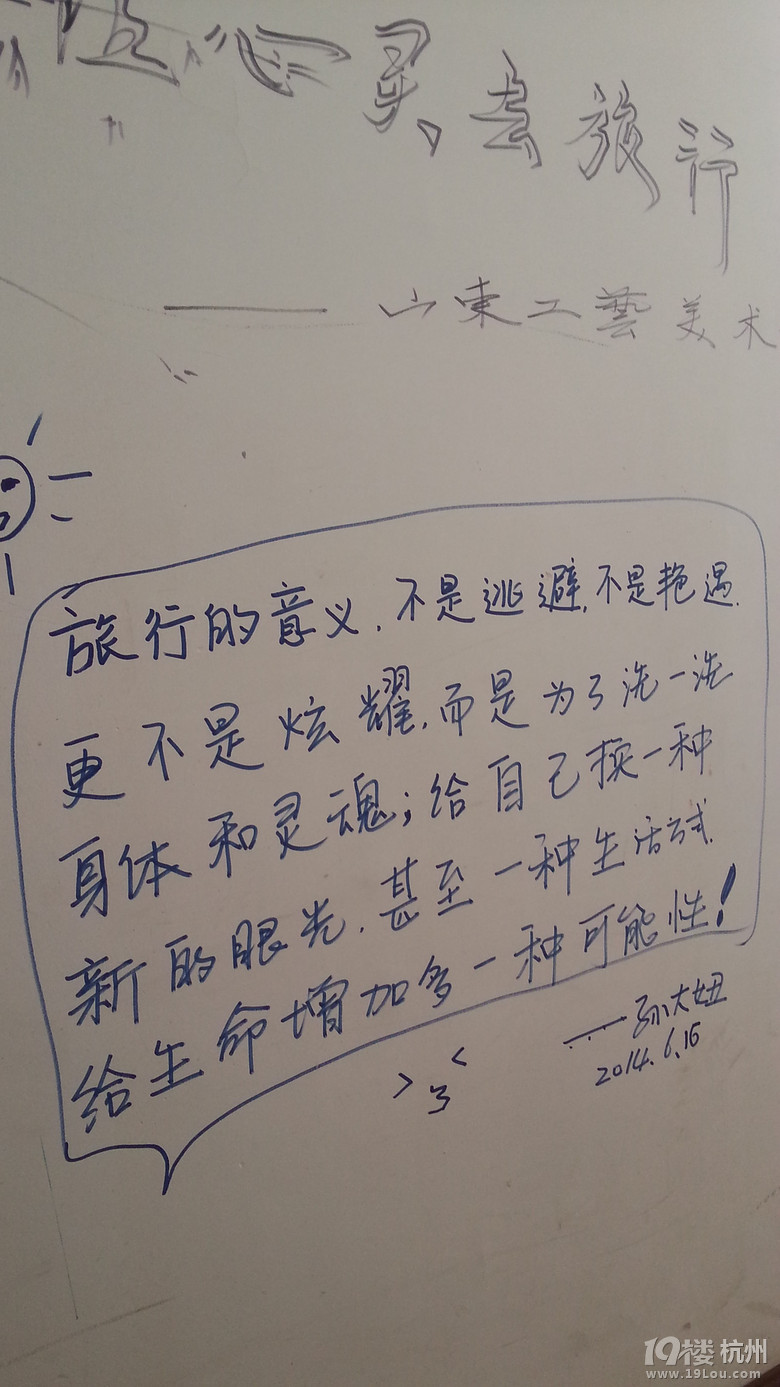 心灵去旅行
—— 山東工藝美术
旅行的意义,不是逃避,不是艳遇.
更不是炫耀,而是为了洗一洗
身体和灵魂;给自己换一种
新的眼光,甚至一种生活方式.
给生命增加多一种可能性!
——孙大妞
2014.6.15
>3<
19楼杭州
www.19Lou.com